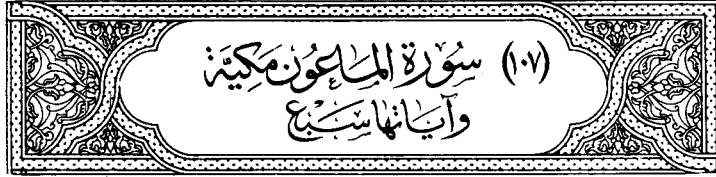 (١٠٧) سُورَة المَاعُون مَكيَّة
وآيَاتهَا سَبْع